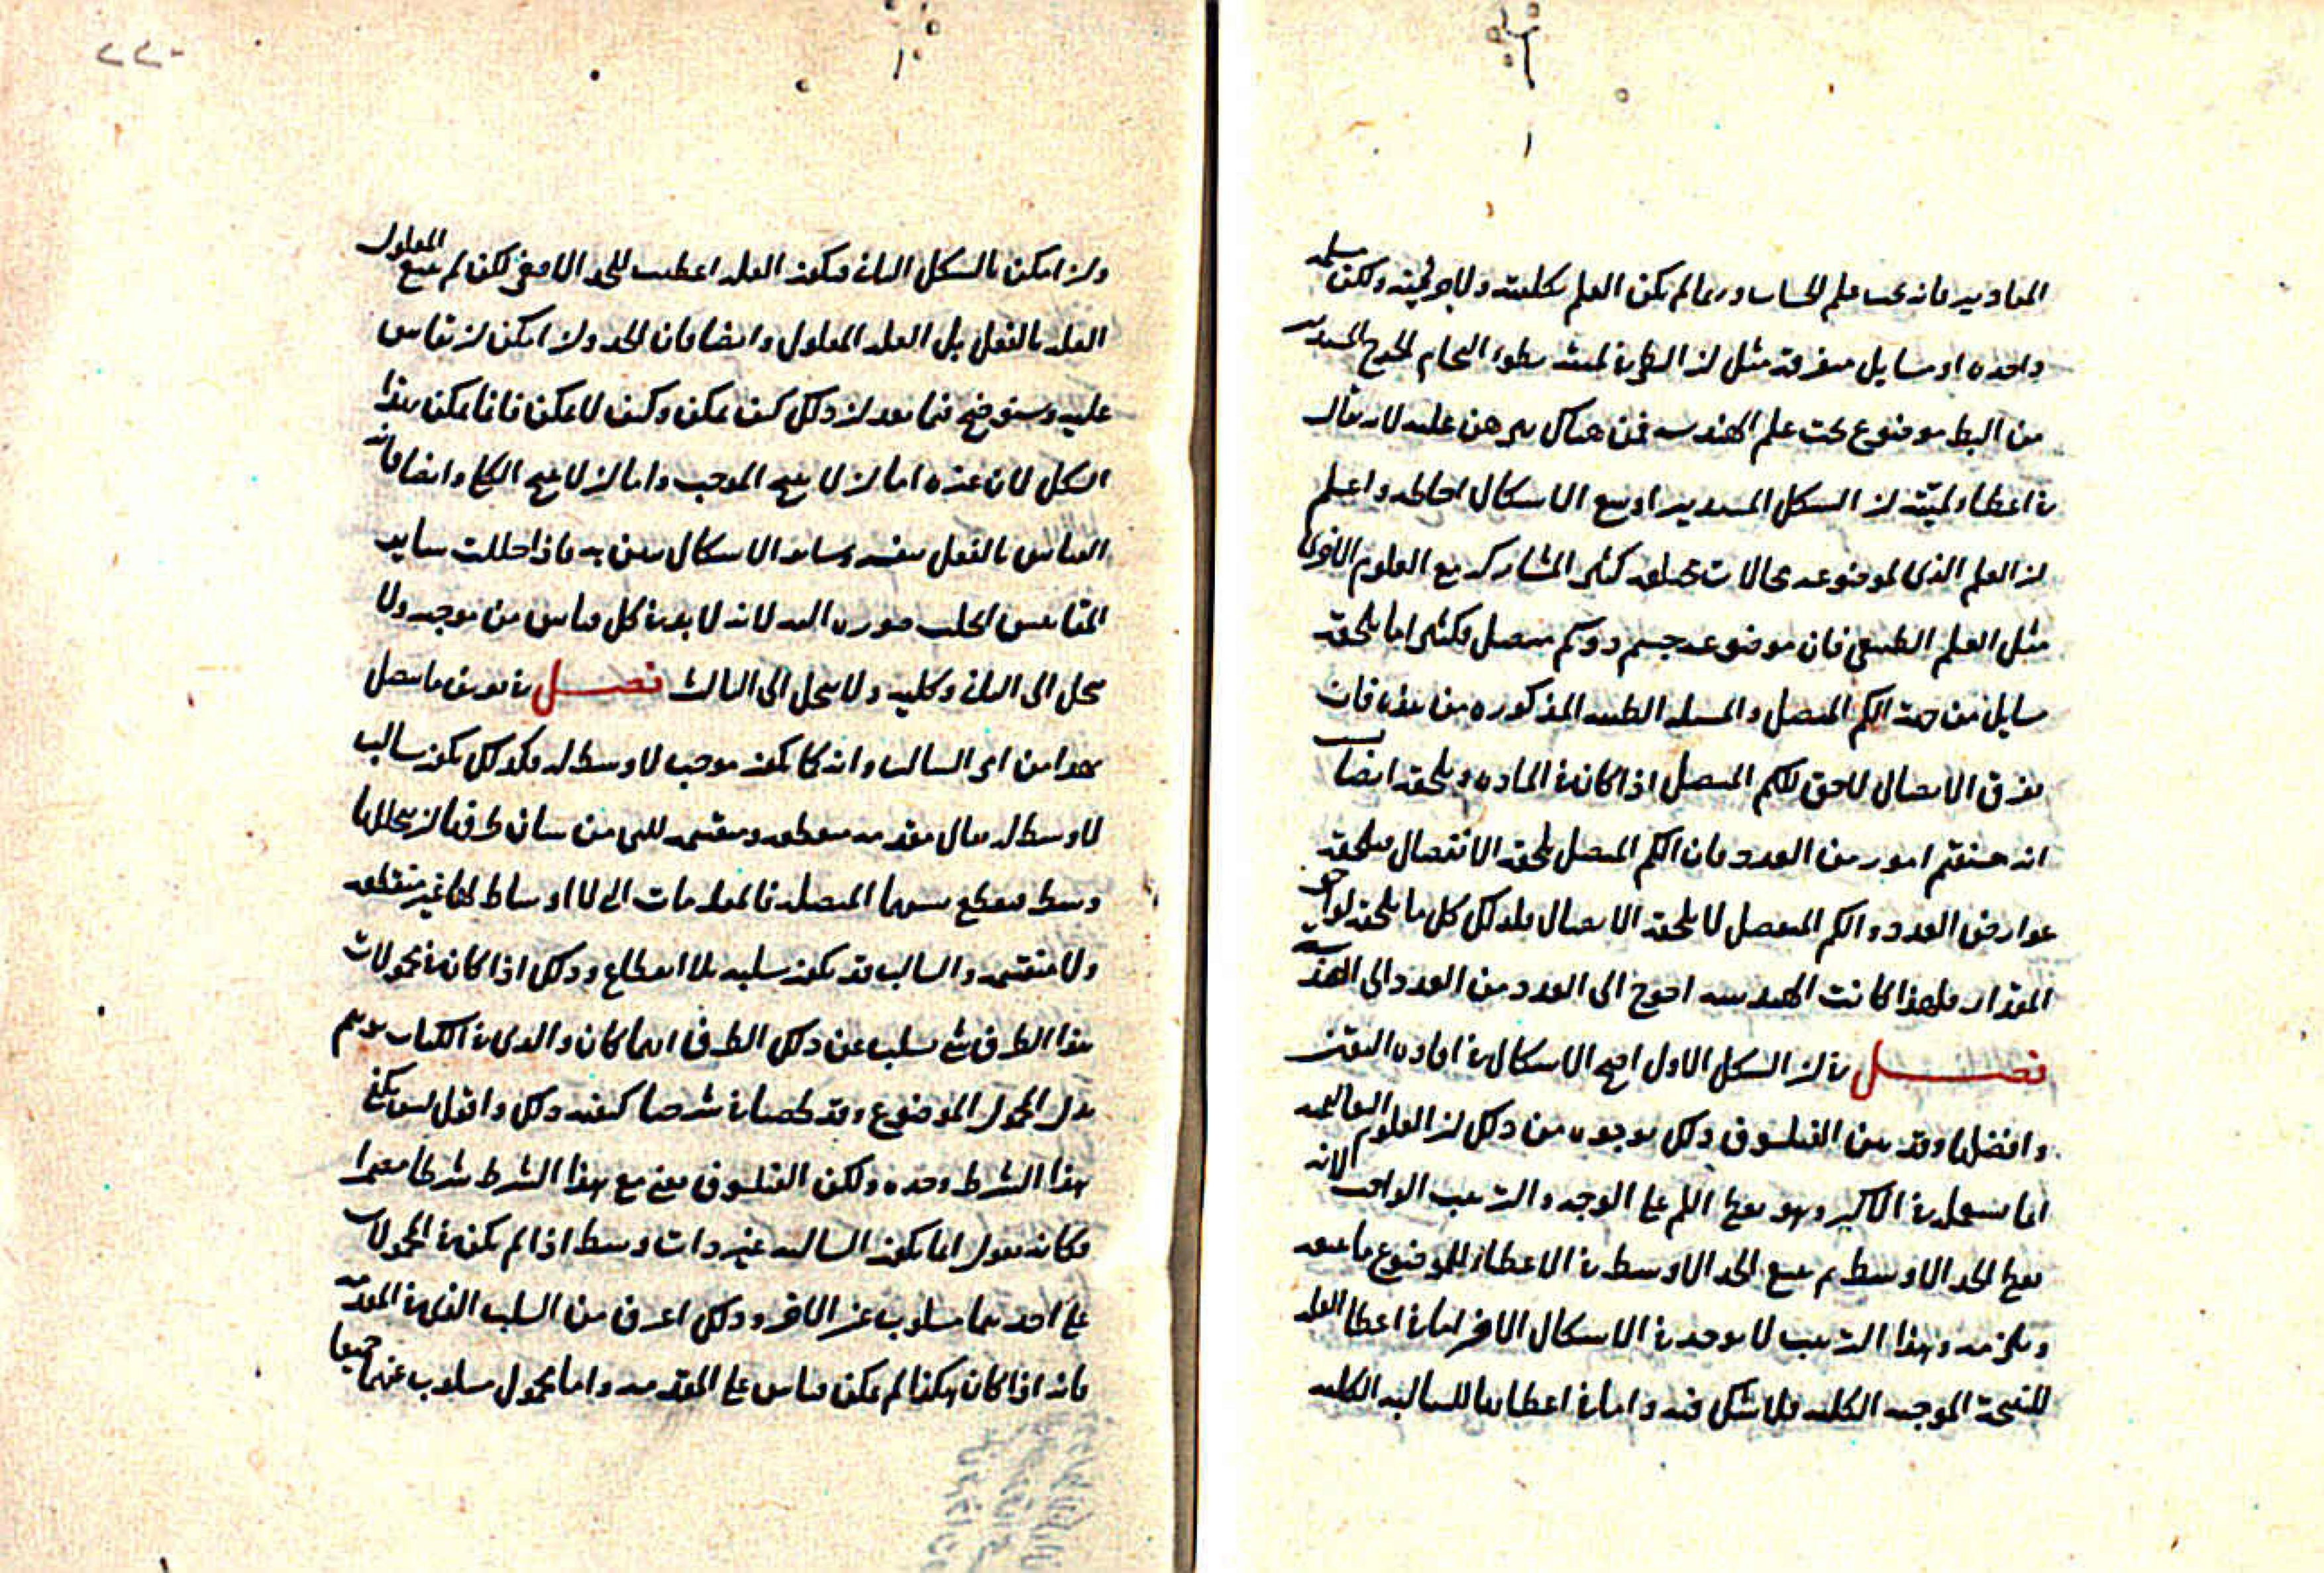 المقادير فانه تحت علم الحساب وربما لم يكن العلم بكليته ولا جزئيته ولكن مسله
واحده او مسايل متفرقة مثل ان
من الطب موضوع تحت علم الهندسه فمن هناك يبرهن عليه لانه يقال
في اعطاء لميته ان الشكل المستدير اوسع الاشكال احاطه واعلم
ان العلم الذي لموضوعه حالات مختلفه كثير المشاركه مع العلوم الاخرى
مثل العلم الطبيعي فان موضوعه جسم ذو كم متصل فكثيرا ما يلحقه
مسايل من جهة الكم المتصل والمسله الطبيه المذكوره من هذه فان
تفرق الاتصال لاحق للكم المتصل اذا كان في الماده ويلحقه ايضا
امور من العدد فان الكم المتصل يلحقه الانفصال فيلحقه
عوارض العدد والكم المنفصل لا يلحقه الاتصال فلذلك كل ما يلحقه لواحق
المقدار فلهذا كانت الهندسه احوج الى العدد من العدد الى الهندسه
فصل في ان الشكل الاول اصح الاشكال في افاده اليقين
وافضلها وقد بين الفيلسوف ذلك بوجوه من ذلك ان العلوم التعاليميه
انما تستعمله في الاكثر وهو يعطي اللم على الوجه والترتيب الواجب لانه
يعطي الحد الاوسط ثم يتبع الحد الاوسط في الاعطاء للموضوع ما يتبعه
ويلزمه وهذا الترتيب لا يوجد في الاشكال الاخر اما في اعطا العله
للنتيجة الموجبه الكليه فلا شك فيه واما في اعطائها للسالبه الكليه
وان امكن بالشكل الثاني فيكون العله اعطيت للحد الاصغر لكن لم يتبع المعلول
العله بالفعل بل العله المعلول وايضا فان الحد وان امكن ان يقاس
عليه وسنوضح فيما بعد ان ذلك كيف يمكن وكيف لا يمكن فانما يمكن بهذا
الشكل لان غيره اما ان لا ينتج الموجب واما ان لا ينتج الكلي وايضا فانه
القياس بالفعل بنفسه وساير الاشكال يبين به فاذا حللت ساير
المقاييس انحلت صورة اليه لانه لا بد في كل قياس من موجبه ولا
ينحل الى الثاني وكليه ولا ينحل الى الثالث فصل في تعريف ما يتصل
بهذا من امر السالب وانه كما يكون موجب لا وسط له فكذلك يكون سالب
لا وسط له يقال مقدمه منقطعه ومنقسمه للتي من شان طرفيها ان يتخللها
وسط فيقطع بينهما المتصله فالمقدمات التي لا اوساط لها غير منقطعه
ولا منقسمه والسالب قد يكون سلبه بلا انقطاع وذلك اذا كان في محمولات
هذا الطرف شي يسلب عن ذلك الطرف ايهما كان والذي في الكتاب يوهم
بدل المحمول الموضوع وقد لخصنا في شرحنا كيفيه ذلك واقول ليس يكفي
هذا الشرط وحده ولكن الفيلسوف يعني مع هذا الشرط شرطا
فكانه يقول انما يكون السالبه غير ذات وسط اذا لم يكن في المحمولات
على احدهما مسلوب عن الاخر وذلك اعرف من السلب الذي في المقدمه
فانه اذا كان هكذا لم يمكن قياس على المقدمه واما محمول مسلوب عنهما جميعا